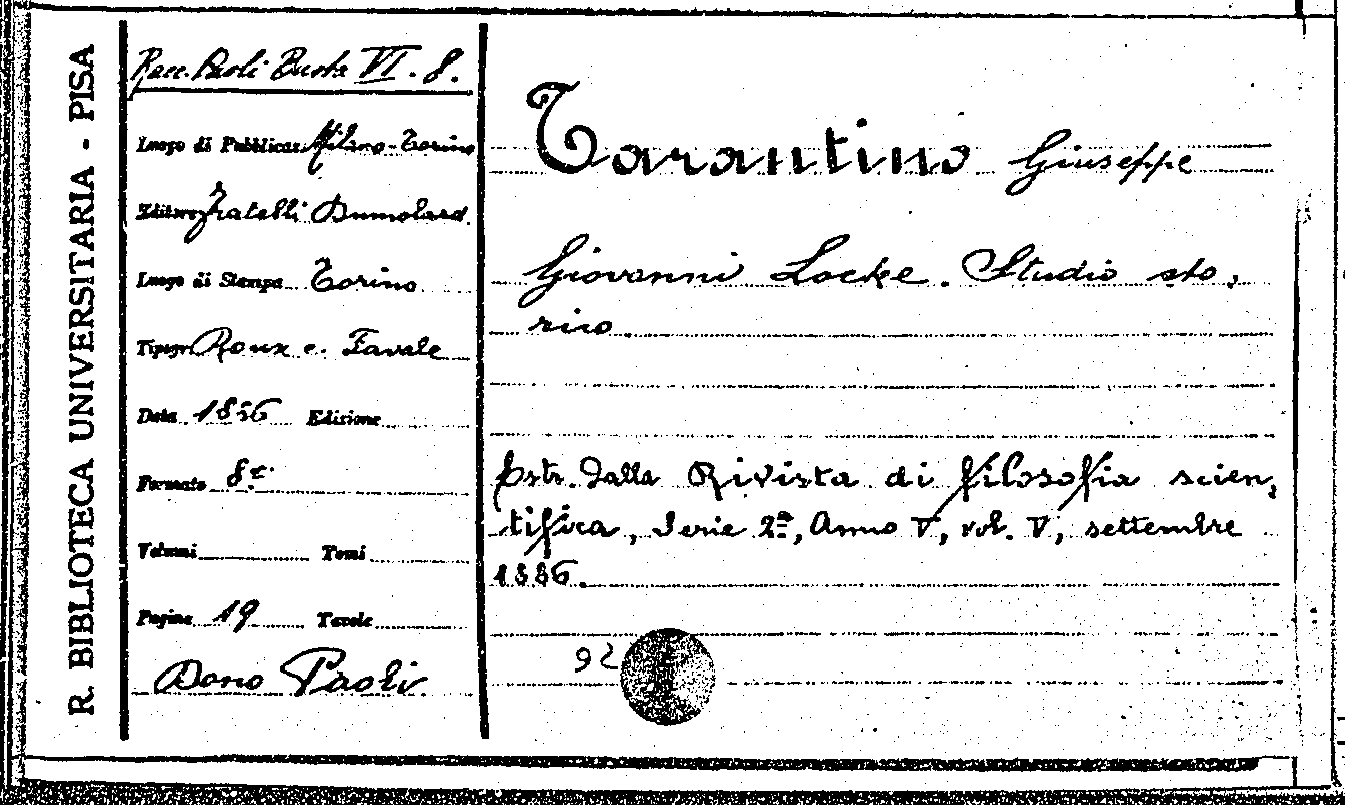 R. BIBLIOTECA UNIVERSITARIA - PISA
Racc. Paoli Busta VI. 8.
Luogo di Pubblicaz. Milano-Torino
Editore Fratelli Dumolard
Luogo di Stampa Torino
Tipogr. Roux e. Favale
Data 1886 Edizione
Formato 8º
Volumi Tomi
Pagine 19 Tavole
Dono Paoli
Tarantino Giuseppe
Giovanni Locke. Studio sto,
rico
Estr. dalla Rivista di filosofia scien,
tifica, Serie 2ª, Anno V, vol. V, settembre
1886.
92